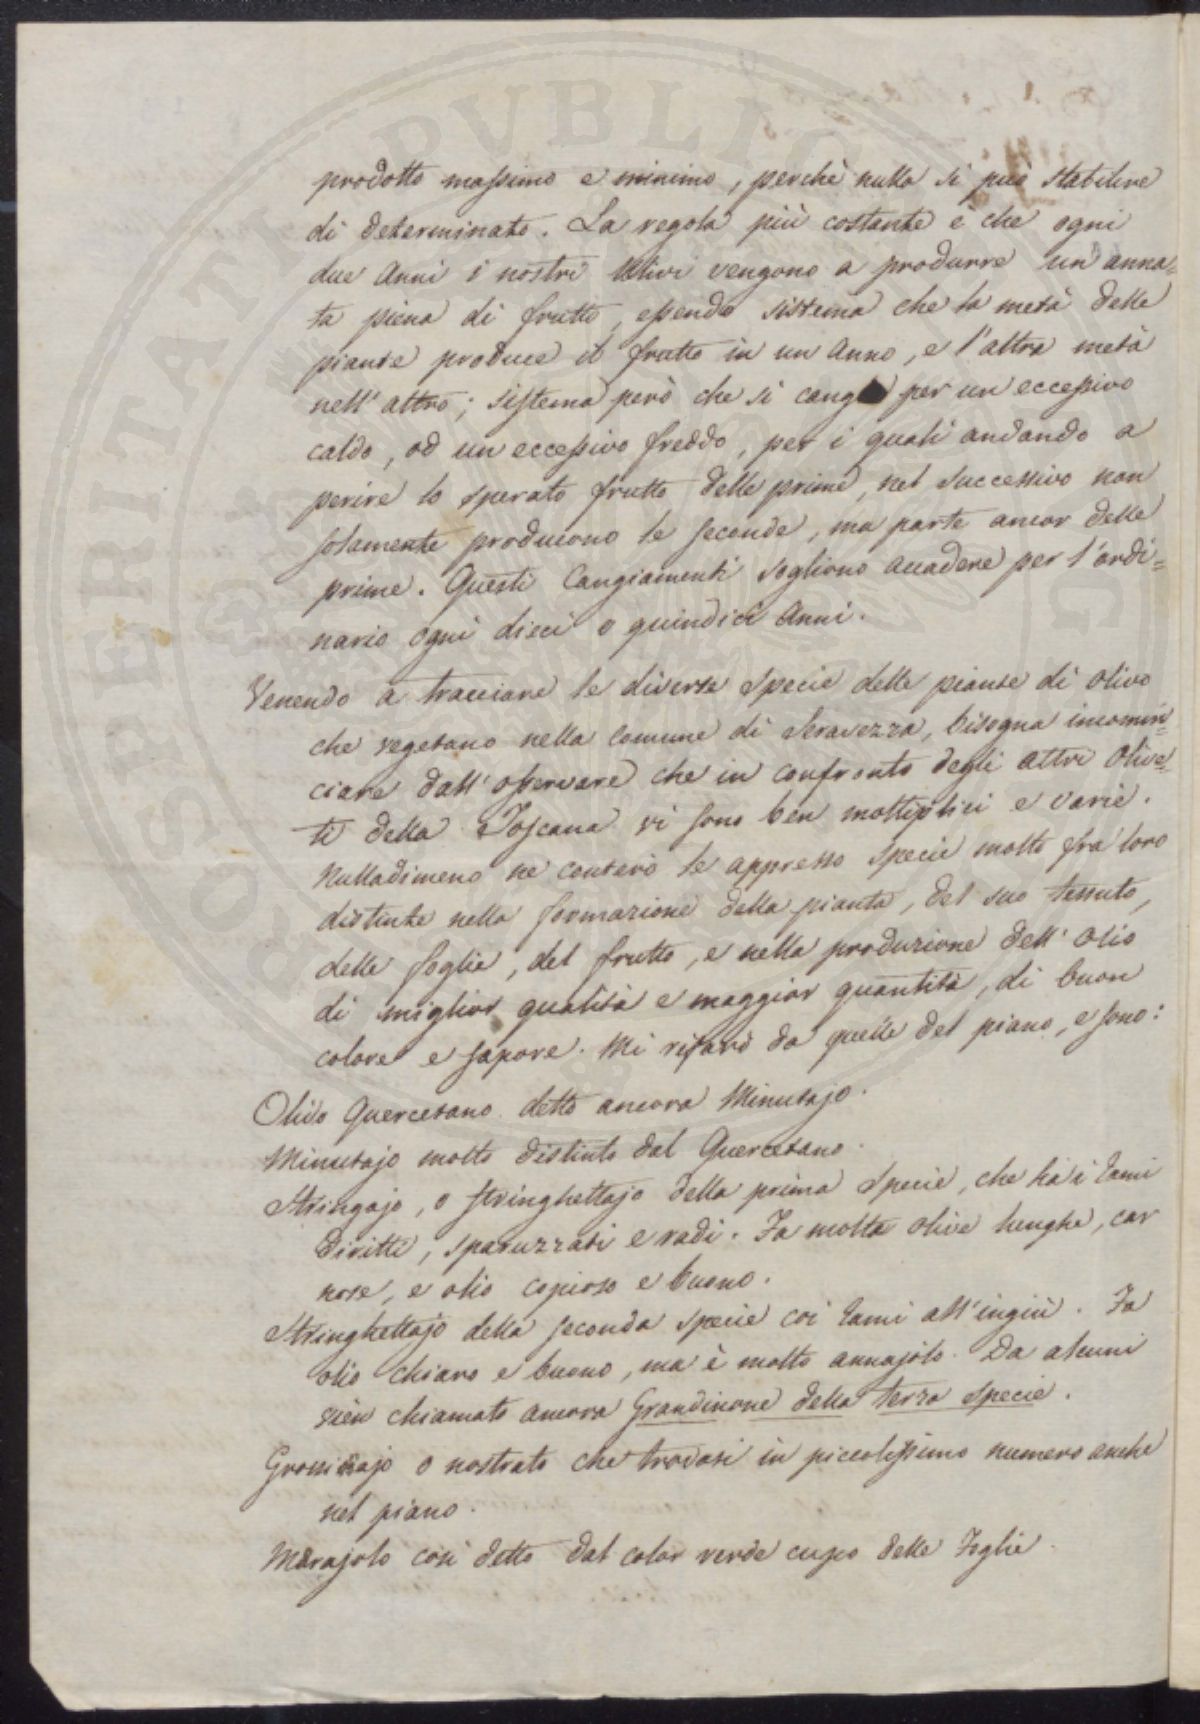 prodotto massimo e minimo, perchè nulla si può stabilire
di determinato. La regola più costante è che ogni
due Anni i nostri Ulivi vengono a produrre un'anna=
ta piena di frutto, essendo sistema che la metà delle
piante produce il frutto in un Anno, e l'altra metà
nell'altro; sistema però che si cangia per un eccessivo
caldo, od un eccessivo freddo, per i quali andando a
perire lo sperato frutto delle prime, nel successivo non
solamente producono le seconde, ma parte ancor delle
prime. Questi Cangiamenti sogliono accadere per l'ordi=
nario ogni dieci o quindici Anni.
Venendo a tracciare le diverse specie delle piante di olivo
che vegetano nella Comune di Seravezza, bisogna incomin=
ciare dall'osservare che in confronto degli altri Olive=
ti della Toscana vi sono ben moltiplici e varie.
Nulladimeno ne conterò le appresso specie molto fra loro
distinte nella formazione della pianta, del suo tessuto,
delle foglie, del frutto, e nella produzione dell'olio
di miglior qualità e maggior quantità, di buon
colore e sapore. Mi rifarò da quelle del piano, e sono:
Olivo Quercetano detto ancora Minutajo.
Minutajo molto distinto dal Quercetano.
Stringajo, o stringhettajo della prima specie, che ha i rami
diritti, sparuzzati e radi. Fa molte olive lunghe, car
nose, e olio copioso e buono.
Stringhettajo della seconda specie coi rami all'ingiù. Fa
olio chiaro e buono, ma è molto annajolo. Da alcuni
vien chiamato ancora Grandinone della terza specie.
Grossicajo o nostrato che trovasi in piccolissimo numero anche
nel piano.
Morajolo così detto dal color verde cupo delle Foglie.
PROSPERITATI PVBLIC